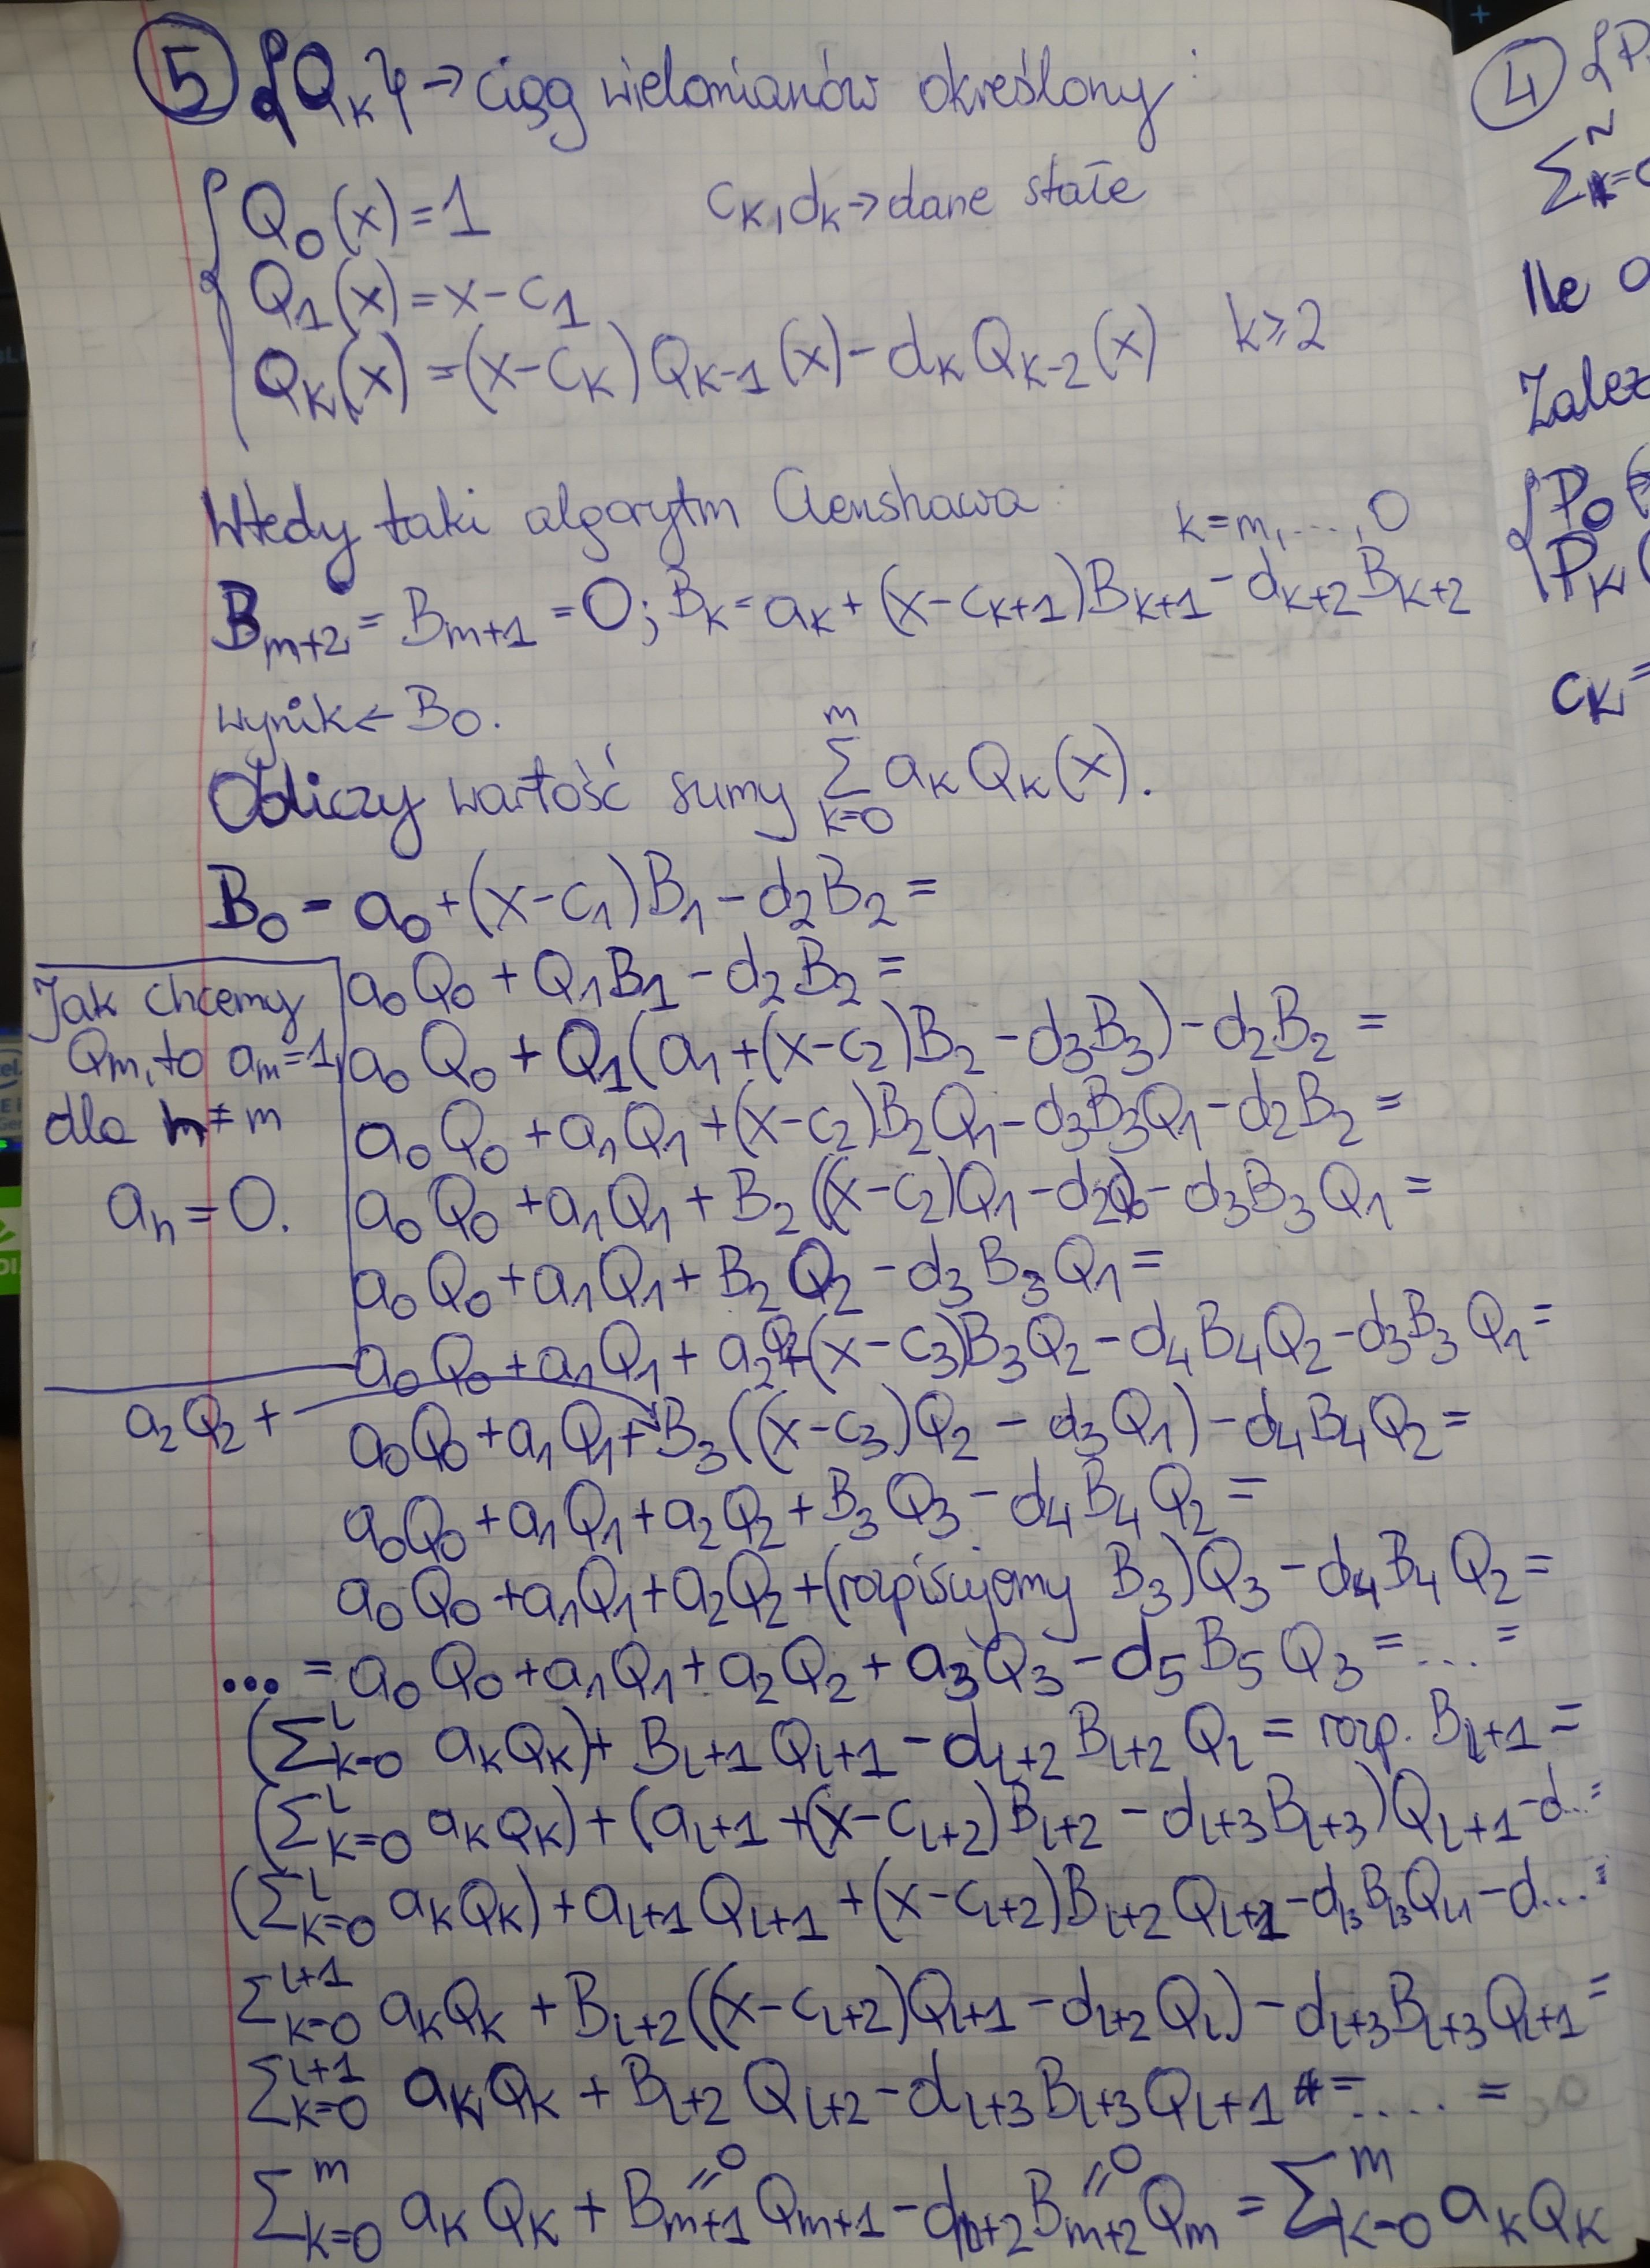 ⑤ {Qk} → ciąg wielomianów określony:
Q0(x)=1 ck,dk→dane stałe
Q1(x)=x-c1
Qk(x)=(x-ck)Qk-1(x)-dkQk-2(x) k≥2
Wtedy taki algorytm Clenshawa: k=m,...,0
Bm+2=Bm+1=0; Bk=ak+(x-ck+1)Bk+1-dk+2Bk+2
wynik←B0.
Obliczy wartość sumy Σ_{k=0}^{m} akQk(x).
B0=a0+(x-c1)B1-d2B2=
a0Q0+Q1B1-d2B2=
a0Q0+Q1(a1+(x-c2)B2-d3B3)-d2B2=
a0Q0+a1Q1+(x-c2)B2Q1-d3B3Q1-d2B2=
a0Q0+a1Q1+B2((x-c2)Q1-d2Q0)-d3B3Q1=
a0Q0+a1Q1+B2Q2-d3B3Q1=
a0Q0+a1Q1+a2Q2+(x-c3)B3Q2-d4B4Q2-d3B3Q1=
Jak chcemy
Qm, to am=1,
dla n≠m
an=0.
a2Q2+
a0Q0+a1Q1+B3((x-c3)Q2-d3Q1)-d4B4Q2=
a0Q0+a1Q1+a2Q2+B3Q3-d4B4Q2=
a0Q0+a1Q1+a2Q2+(rozpisujemy B3)Q3-d4B4Q2=
...=a0Q0+a1Q1+a2Q2+a3Q3-d5B5Q3=...=
(Σ_{k=0}^{l} akQk)+Bl+1Ql+1-dl+2Bl+2Ql=rozp. Bl+1=
(Σ_{k=0}^{l} akQk)+(al+1+(x-cl+2)Bl+2-dl+3Bl+3)Ql+1-d...=
(Σ_{k=0}^{l} akQk)+al+1Ql+1+(x-cl+2)Bl+2Ql+1-dl3Bl3Ql1-d...=
Σ_{k=0}^{l+1} akQk+Bl+2((x-cl+2)Ql+1-dl+2Ql)-dl+3Bl+3Ql+1=
Σ_{k=0}^{l+1} akQk+Bl+2Ql+2-dl+3Bl+3Ql+1=....=
=0 =0
Σ_{k=0}^{m} akQk+Bm+1Qm+1-dm+2Bm+2Qm=Σ_{k=0}^{m} akQk
④ {P
Σ
Ile
P0(
Pk(
ck=